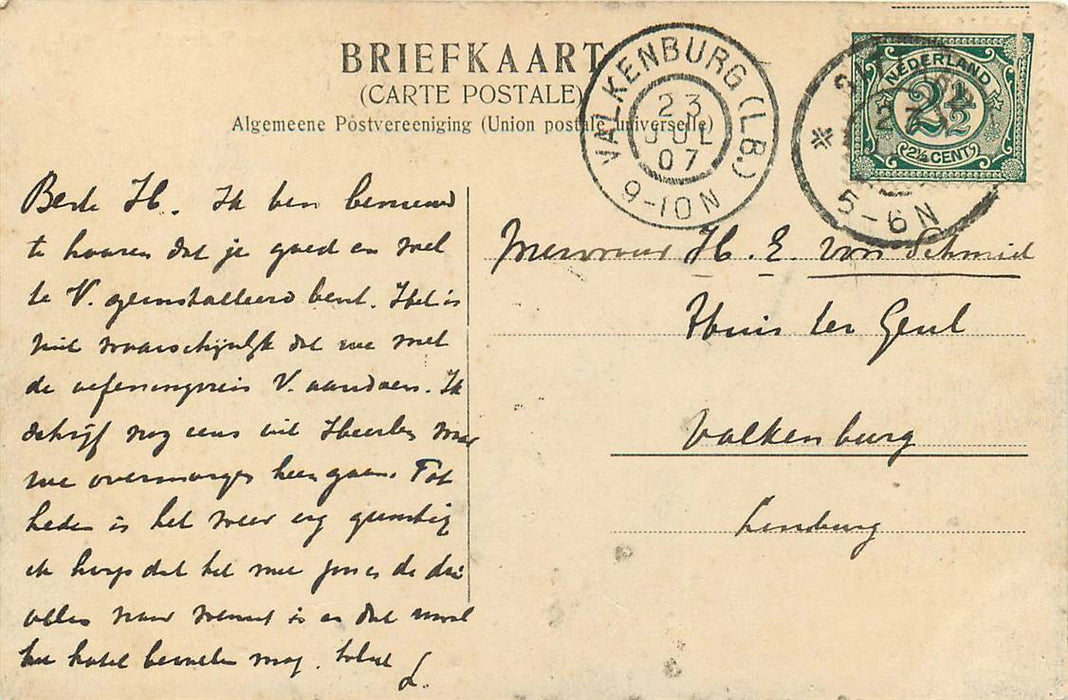 BRIEFKAART
(CARTE POSTALE)
Algemeene Postvereeniging (Union postale universelle)
VALKENBURG (LB.)
23
JUL
07
9-10N
5-6N
NEDERLAND
2½
2½ CENT
Beste H. Ik ben benieuwd
te hooren dat je goed en wel
te V. geinstalleerd bent. Het is
niet waarschijnlijk dat we met
de oefeningsreis V. aandoen. Ik
schrijf nog eens uit Heerlen waar
we overmorgen heengaan. Tot
heden is het weer erg gunstig
ik hoop dat het mee de
alles naar wensch is en dat
het hotel bevallen mag. L.
Mevrouw H. E. von Schmid
Huis ter Geul
Valkenburg
Limburg